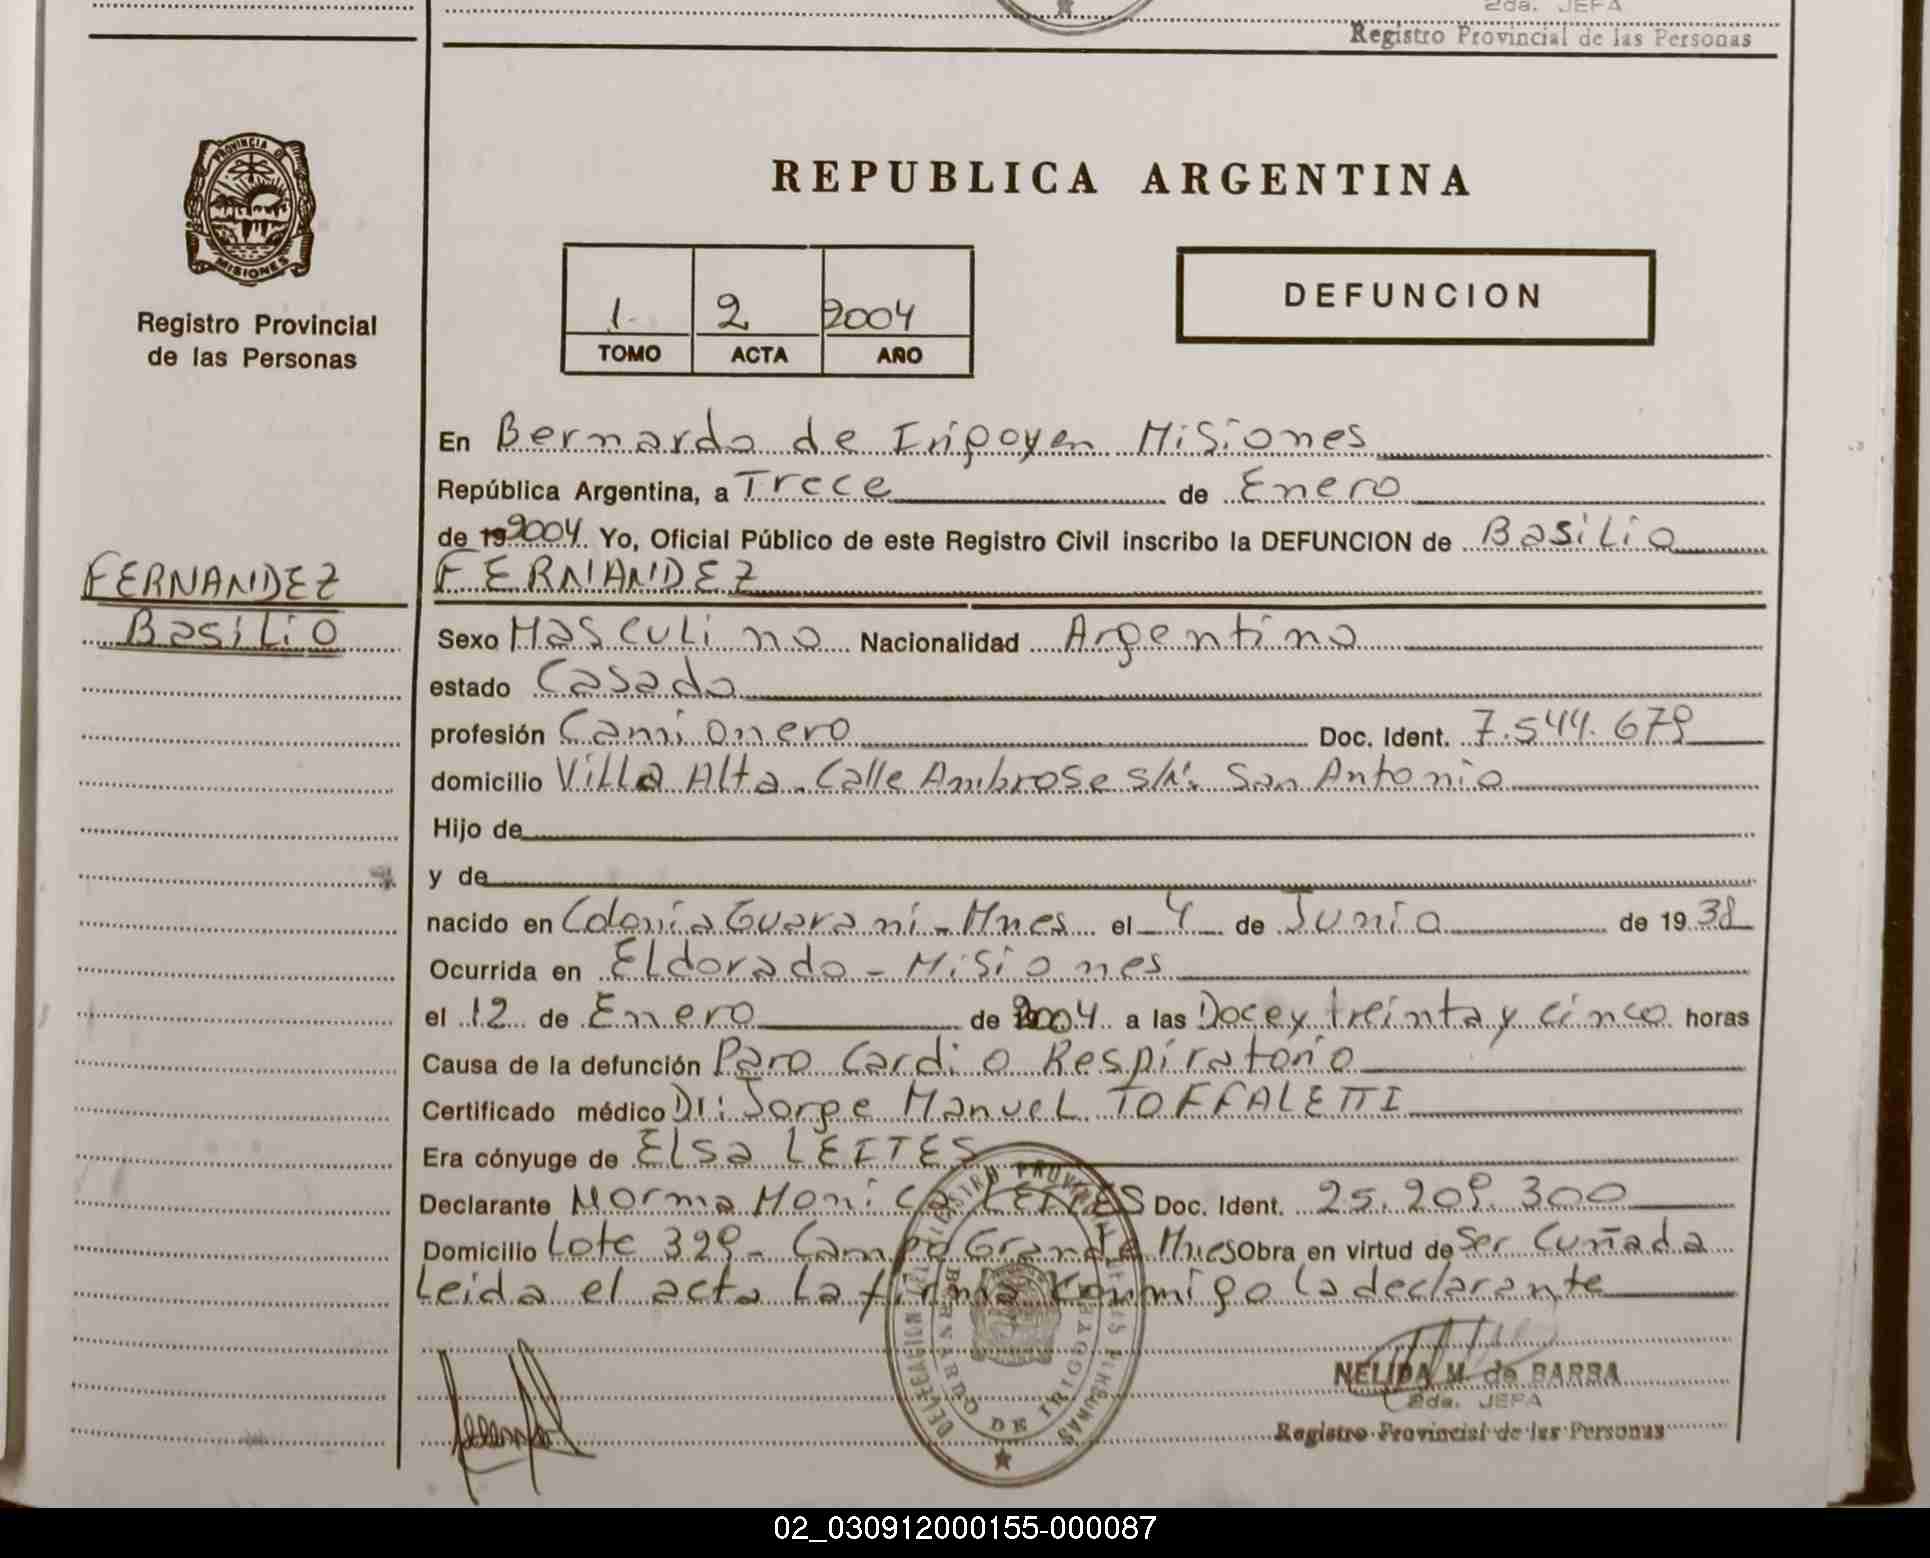 2da. JEFA
Registro Provincial de las Personas
PROVINCIA D
MISIONES
Registro Provincial
de las Personas
REPUBLICA ARGENTINA
1 2 2004
TOMO ACTA AÑO
DEFUNCION
En Bernardo de Irigoyen Misiones
República Argentina, a Trece de Enero
de 192004 Yo, Oficial Público de este Registro Civil inscribo la DEFUNCION de Basilio
FERNANDEZ
FERNANDEZ
Basilio
Sexo Masculino Nacionalidad Argentino
estado Casado
profesión Camionero Doc. Ident. 7.544.679
domicilio Villa Alta. Calle Ambrose s/nº San Antonio
Hijo de
y de
nacido en Colonia Guaraní - Mnes el 4 de Junio de 1938
Ocurrida en Eldorado - Misiones
el 12 de Enero de 2004 a las Doce y treinta y cinco horas
Causa de la defunción Paro Cardio Respiratorio
Certificado médico Dr: Jorge Manuel TOFFALETTI
Era cónyuge de Elsa LEITES
Declarante Norma Monica LEITES Doc. Ident. 25.209.300
Domicilio Lote 329 - Campo Grande Mnes Obra en virtud de Ser Cuñada
Leida el acta la firma conmigo la declarante
REGISTRO PROVINCIAL DE LAS PERSONAS
DELEGACION
BERNARDO DE IRIGOYEN
NELIDA M. de BARBA
2da. JEFA
Registro Provincial de las Personas
02_030912000155-000087